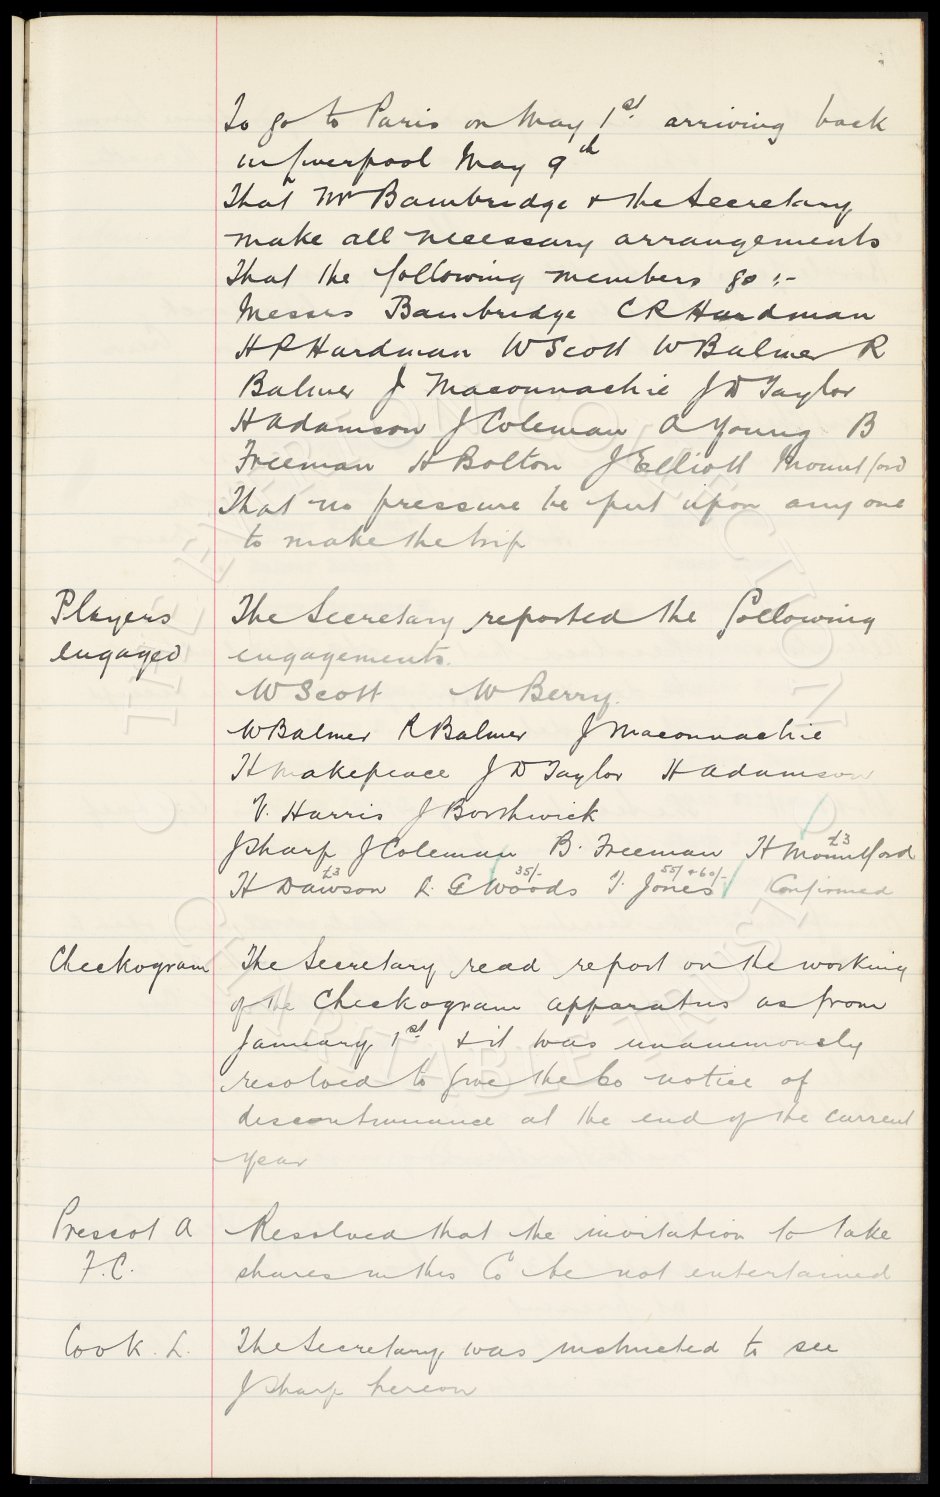 To go to Paris on May 1st. arriving back
in Liverpool May 9th
That Mr Bainbridge & the Secretary
make all necessary arrangements
That the following members go :-
Messrs Bainbridge C R Hardman
H P Hardman W Scott W Balmer R
Balmer J Maconnachie J D Taylor
H Adamson J Coleman A Young B
Freeman H Bolton J Elliott Mountford
That no pressure be put upon any one
to make the trip
Players
engaged
The Secretary reported the following
engagements.
W Scott W Berry.
W Balmer R Balmer J Maconnachie
H Makepeace J D Taylor H Adamson
V. Harris J Borthwick
J Sharp J Coleman B. Freeman H Mountford £3
H Dawson £3 R. G Woods 35/- T. Jones 55/ & 60/- Confirmed
Checkogram
The Secretary read report on the working
of the Checkogram apparatus as from
January 1st. & it was unanimously
resolved to give the Co notice of
discontinuance at the end of the current
year
Prescot A
F.C.
Resolved that the invitation to take
shares in this Co be not entertained
Cook. L.
The Secretary was instructed to see
J Sharp hereon
THE EVERTON COLLECTION
CHARITABLE TRUST